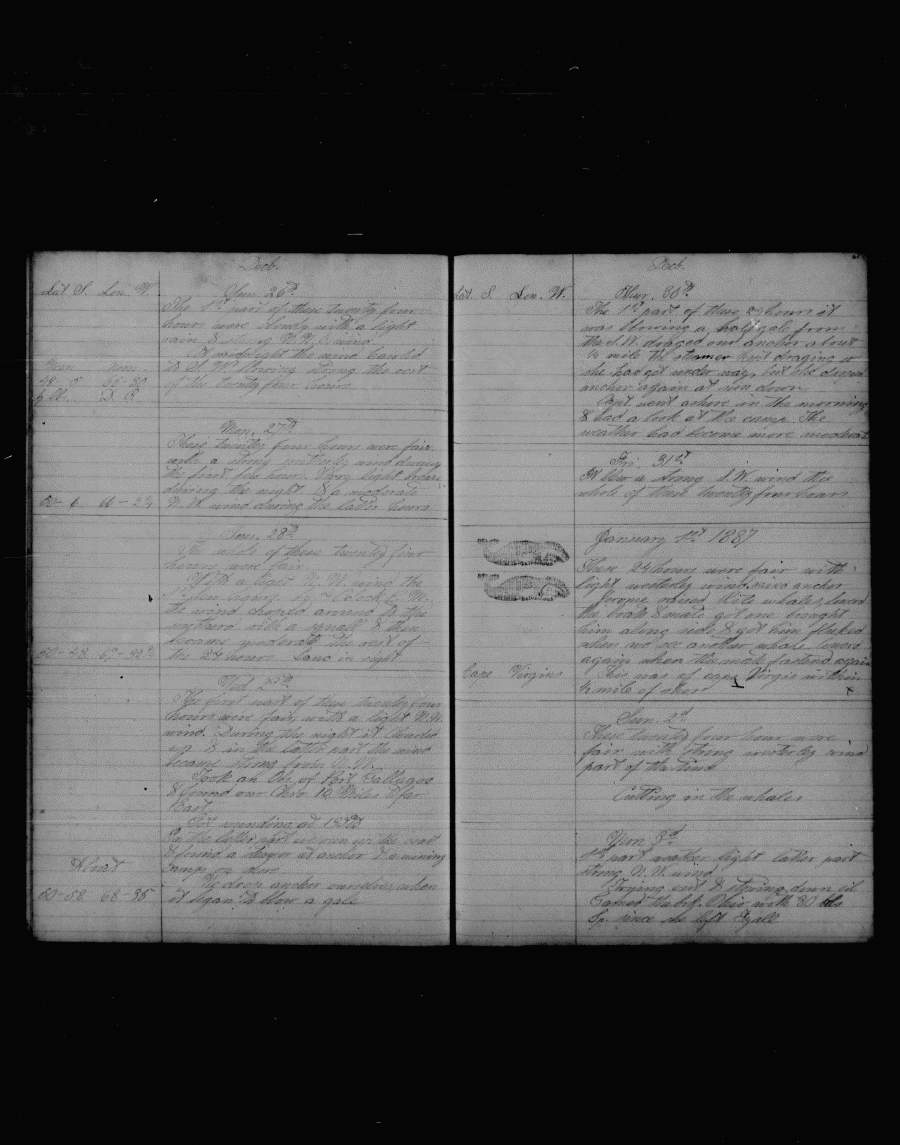 Decb.
Lat S. Lon. W.
Sun. 26th
The 1st part of these twenty four
hours were cloudy with a light
rain & strong N.N.E. wind.
At midnight the wind hauled
to S.W. blowing strong the rest
of the twenty four hours
Noon Noon
48-5 66-30
D. R.
Mon, 27th
These twenty four hours were fair
with a strong westerly wind during
the first few hours. Very light breeze
during the night & a moderate
N.W. wind during the latter hours
50-6 66-24
Tues. 28th
The whole of these twenty four
hours were fair
With a light N.W. wind the
the wind changed around to the
southard with a squall & then
became moderate the rest of
the 24 hours. Land in sight
50-48 67-42
Wed 29th
The first part of these twenty four
hours were fair with a light N.W.
wind. During the night it clouded
up & in the latter part the wind
became strong from S.W.
Took an Ob. of Port Gallagos
& found our Chro 10 Miles to far
East.
Got sounding at
In the latter part we run up the coast
& found a steamer at anchor & a mining
camp on shore
We drop anchor ourselves when
it began to blow a gale
About
50-58 68-35
Decb.
Lat. S. Lon. W.
Thur. 30th
The 1st part of these 24 hours it
was blowing a half gale from
the S.W. draged our anchor about
¼ mile the steamer kept draging so
she had got under way, but she droped
anchor again at sun down
Capt. went ashore in the morning
& had a look at the camp The
weather had become more moderate
Fri 31st
It blew a strong S.W. wind the
whole of these twenty four hours
January 1st 1887
These 24 hours were fair with
light westerly wind raise anchor
Jerome raised Rite whales, lowered
the boats & mate got one brought
him along side & got him fluked
when we see another whale lowered
again when the mate fastend again
This was of cape Virgin within
½ mile of shore
Cape Virgins
Sun. 2d
These twenty four hour were
fair with strong westerly wind
part of the time
Cutting in the whales
Mon 3d
1st part weather light latter part
strong N.W. wind
Trying out & stowing down oil
Gamed the bk. Ohio with 80 bbls
Sp. since she left Fyall